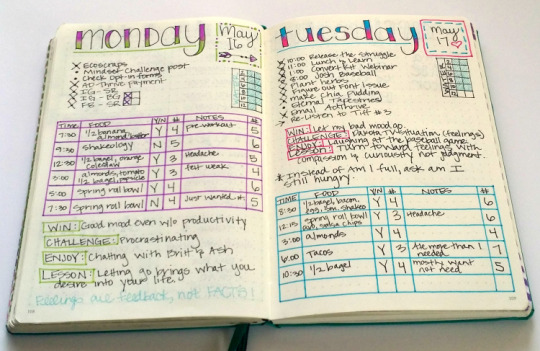 monday
May
16
X Ecoscraps
• Mindset Challenge post
• Check Opt-in forms
X AD-Thrive Payment
X IG - SE
X IG - BG
X FB - SR
TIME FOOD Y/N # NOTES #
7:30 1/2 banana, almond butter Y 4 Pre-workout 5
9:30 shakeology N 5 5
12:30 1/2 bagel, orange coleslaw Y 3 Headache 5
3:00 almonds, tomato 1/2 bagel, Y 3 felt weak 4
5:00 Spring roll bowl Y 4 6
7:30 Spring roll bowl N 4 Just wanted it 5
WIN: Good mood even w/o productivity
CHALLENGE: Procrastinating
ENJOY: Chatting with Britt & Ash
LESSON: Letting go brings what you
desire into your life.
Feelings are feedback, not FACTS!
tuesday
May
17
X 10:00 Release the Struggle
X 11:00 Lunch & Learn
X 1:00 Convert Kit Webinar
X 6:00 Josh Baseball
X Plant herbs
X Figure out Font Issue
X make chia pudding
• Eternal Tapestries
X Email ActiThrive
• Re-Listen to Tiff #3
WIN: Let my bad mood go.
CHALLENGE: Dakota TV Situation (feelings)
ENJOY: Laughing at the baseball game.
LESSON: Turn toward feelings with
compassion & curiousity not judgment.
* Instead of Am I full, ask am I
still hungry?
TIME FOOD Y/N # NOTES #
8:30 1/2 bagel, bacon, egg, sm. shakeo Y 4 6
12:15 Spring roll bowl, salsa chips Y 3 Headache 6
3:00 almonds Y 4 6
6:00 Tacos Y 3 Ate more than I needed 7
10:30 1/2 bagel Y 4 mostly want not need 5